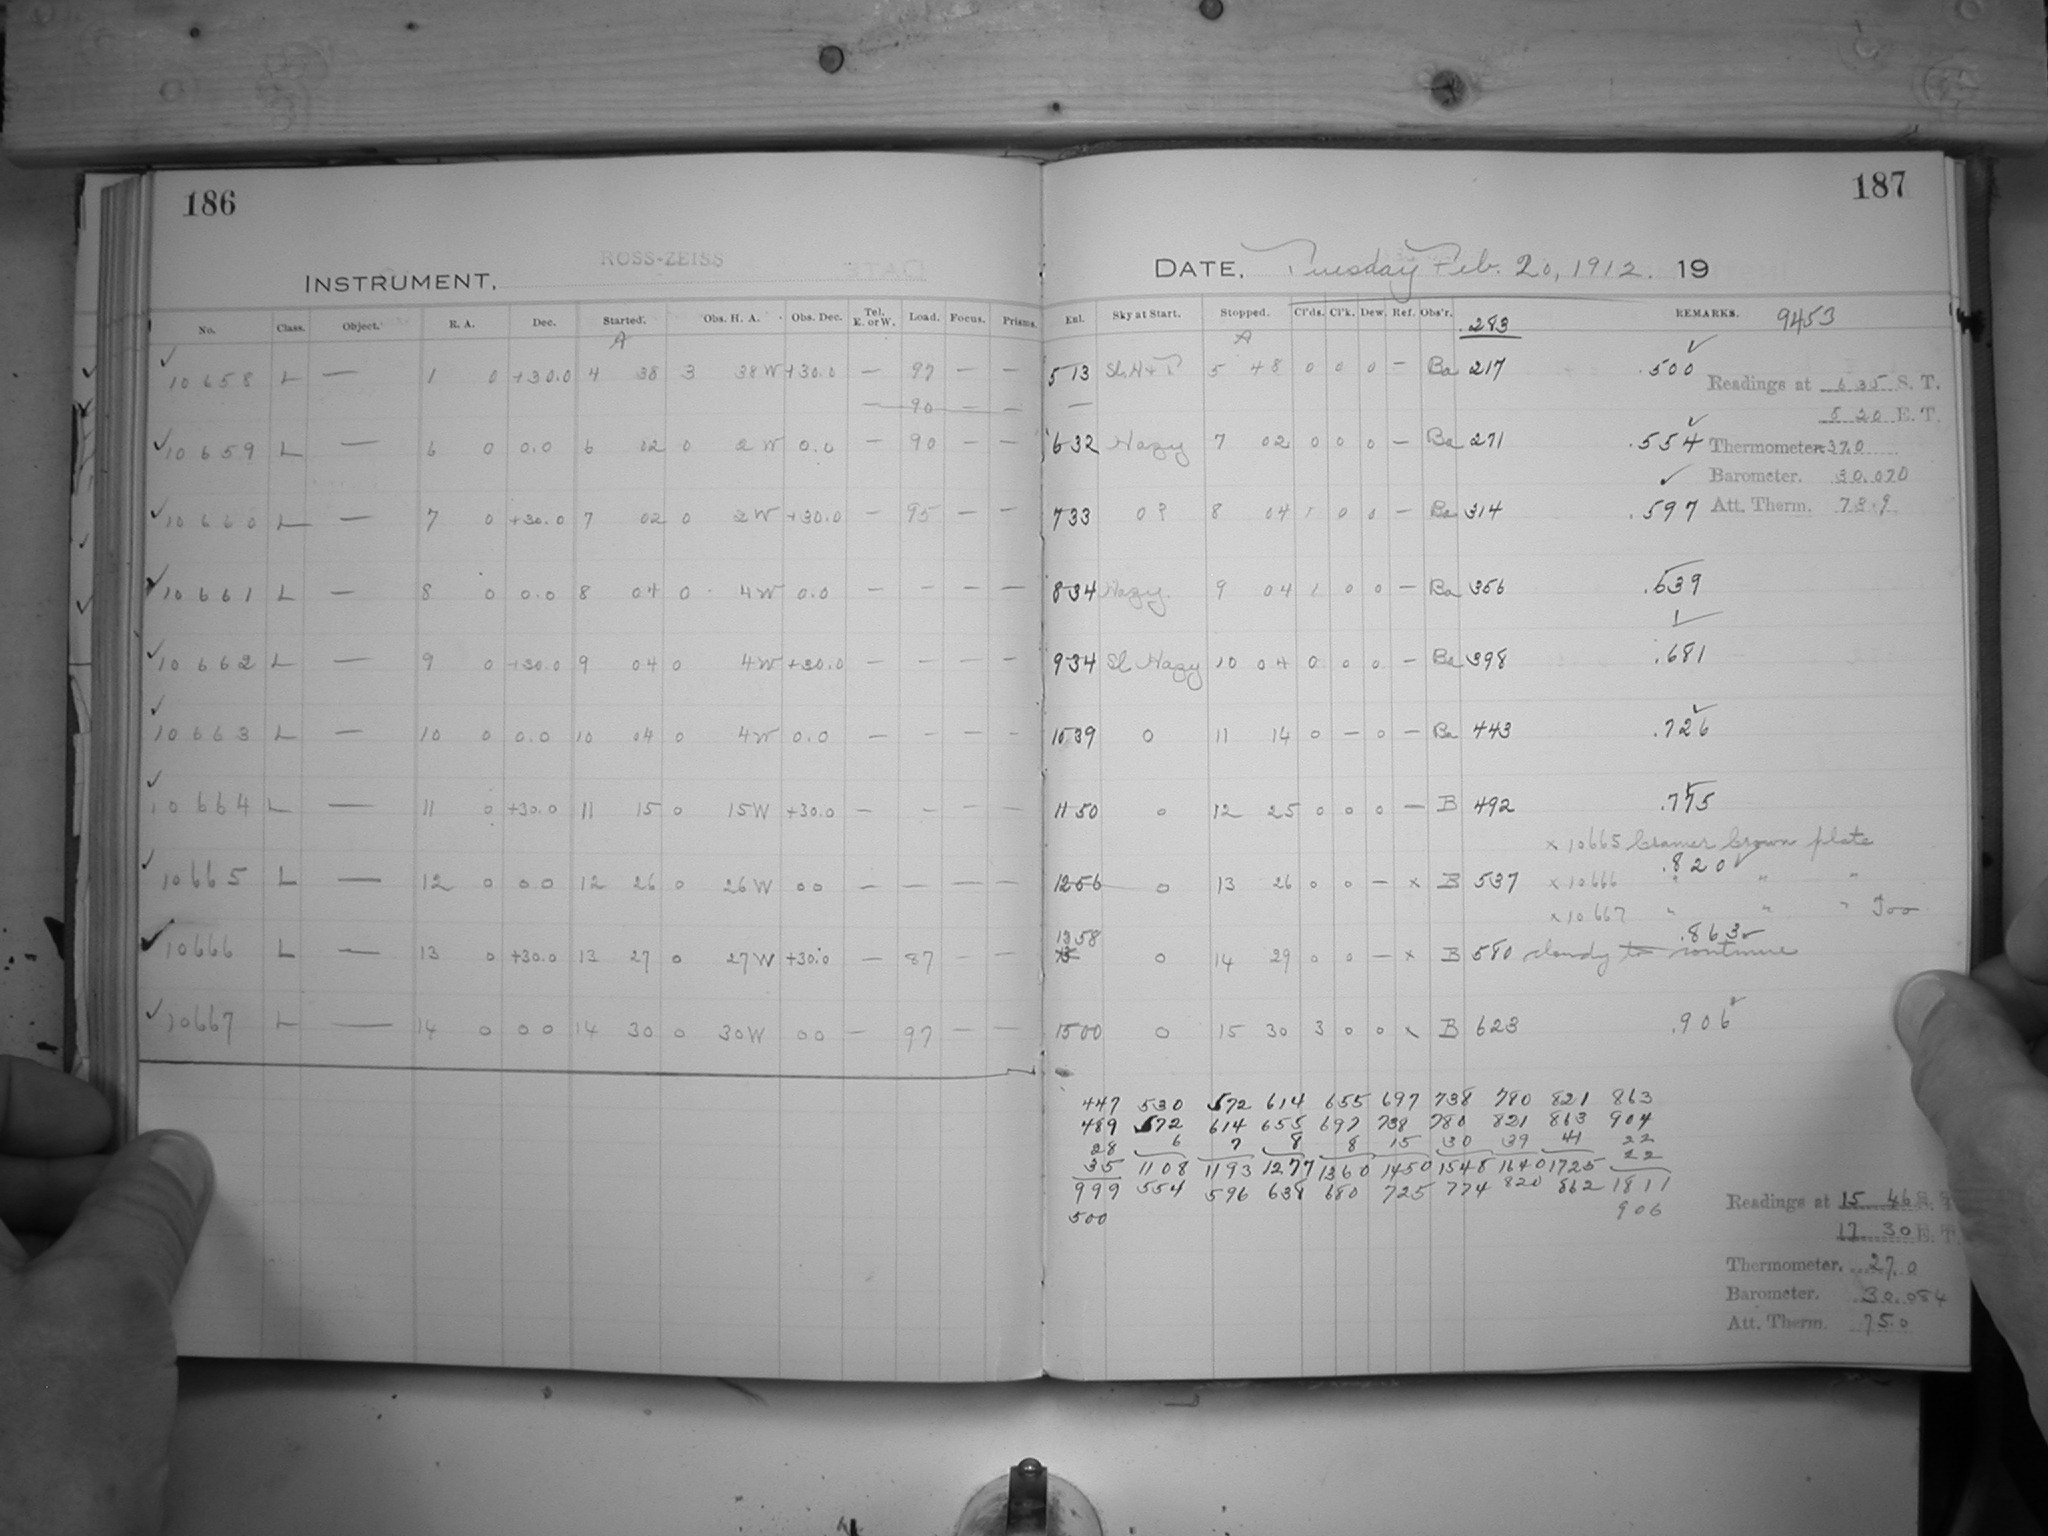 186
ROSS-ZEISS
INSTRUMENT.
No. Class. Object. R. A. Dec. Started. Obs. H. A. Obs. Dec. Tel. E. or W. Load. Focus. Prisms.
A
10658 L — 1 0 +30.0 4 38 3 38W +30.0 — 97 — —
— 90 — —
10659 L — 6 0 0.0 6 02 0 2W 0.0 — 90 — —
10660 L — 7 0 +30.0 7 02 0 2W +30.0 — 95 — —
10661 L — 8 0 0.0 8 04 0 4W 0.0 — — — —
10662 L — 9 0 +30.0 9 04 0 4W +30.0 — — — —
10663 L — 10 0 0.0 10 04 0 4W 0.0 — — — —
10664 L — 11 0 +30.0 11 15 0 15W +30.0 — — — —
10665 L — 12 0 00 12 26 0 26W 00 — — — —
10666 L — 13 0 +30.0 13 27 0 27W +30.0 — 87 — —
10667 L — 14 0 00 14 30 0 30W 00 — 97 — —
187
DATE. Tuesday Feb. 20, 1912. 19
Enl. Sky at Start. Stopped. Cl'ds. Cl'k. Dew. Ref. Obs'r. .283 REMARKS. 9453
A
513 Sl. H + P 5 48 0 0 0 — Ba 217 .500
—
632 Hazy 7 02 0 0 0 — Ba 271 .554
733 0 ? 8 04 1 0 0 — Ba 314 .597
834 Hazy. 9 04 1 0 0 — Ba 356 .639
934 Sl Hazy 10 04 0 0 0 — Ba 398 .681
1039 0 11 14 0 — 0 — Ba 443 .726
1150 0 12 25 0 0 0 — B 492 .775
x 10665 Cramer Crown plate
.820
1256 0 13 26 0 0 — x B 537 x 10666 " " "
x 10667 " " " Too
.863
1358 0 14 29 0 0 — x B 580 cloudy to continue
1500 0 15 30 3 0 0 x B 623 .906
Readings at 6 35 S. T.
5 20 E. T.
Thermometer 37.0
Barometer. 30.070
Att. Therm. 73.9
447 530 572 614 655 697 738 780 821 863
489 572 614 655 697 738 780 821 863 904
28 6 7 8 8 15 30 39 41 22
35 1108 1193 1277 1360 1450 1548 1640 1725 22
999 554 596 638 680 725 774 820 862 1811
500 906
Readings at 15 46 S. T
17 30 E. T.
Thermometer. 27.0
Barometer. 30.084
Att. Therm. 75.0